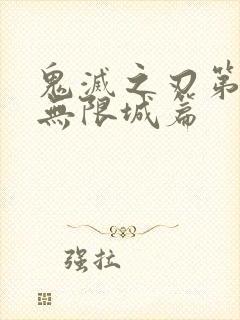 鬼滅之刃第
無限城篇
强拉